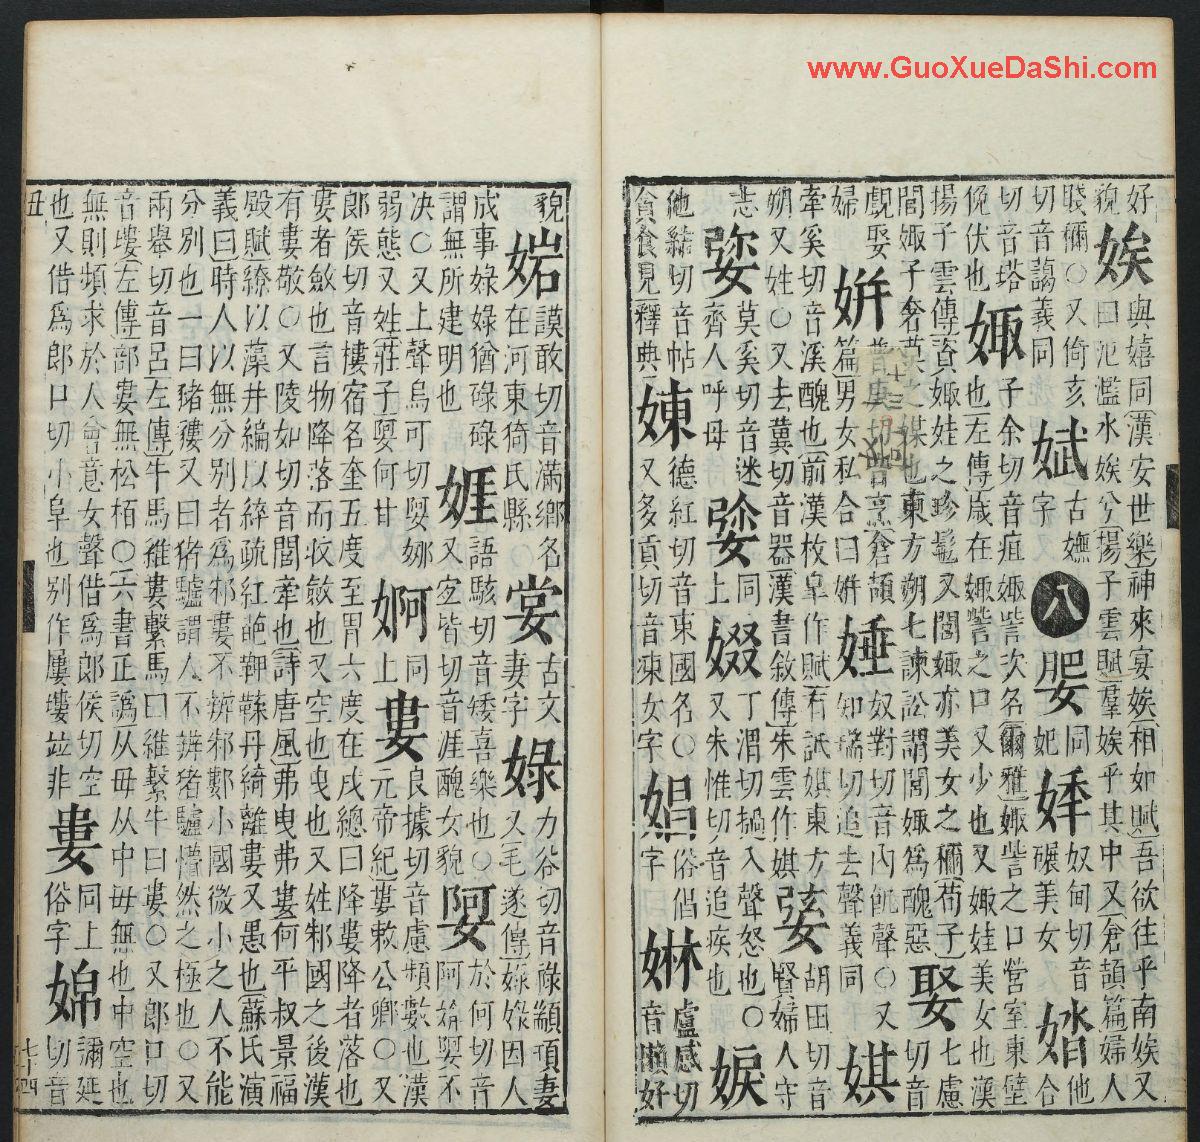 好
貌
娭
與嬉同[漢安世樂]神來宴娭[相如賦]吾欲往乎南娭又
曰氾濫水娭兮[揚子雲賦]羣娭乎其中又[倉頡篇]婦人
賤稱○又倚亥
切音藹義同
娬
古嫵
字
八
同
妃
奴甸切音
碾美女
他
合
切音塔
俛伏也
娵
子余切音疽娵訾次名[爾雅]娵訾之口營室東壁
也[左傳]歲在娵訾之口又少也又娵娃美女也漢
揚子雲傳]資娵娃之珍髢又閭娵亦美女之稱[荀子]
閭娵子奢莫之媒也東方朔七諫訟謂閭娵爲醜惡
娶
七慮
切音
覷娶
婦
姘
普庚切音烹[倉頡
篇]男女私合曰姘
娷
奴對切音內飢聲○又
知瑞切追去聲義同
娸
牽奚切音溪醜也[前漢枚皋作賦]有詆娸東方
朔又姓○又去冀切音器[漢書敘傳]朱雲作娸
娹
胡田切音
賢婦人守
志
莫奚切音迷
齊人呼母
同
上
娺
丁滑切掇入聲怒也○
又朱惟切音追疾也
他結切音帖
貪食見釋典
娻
德紅切音東國名○
又多貢切音凍女字
娼
俗倡
字
㛦
盧感切
音嬾好
貌
謨敢切音滿鄉名
在河東猗氏縣
古文
妻字
娽
力谷切音祿顓頊妻
又[毛遂傳]娽娽因人
成事娽娽猶碌碌
謂無所建明也
娾
語駭切音矮喜樂也○
又宜皆切音涯醜女貌
娿
於何切音
阿媕娿不
決○又上聲烏可切娿娜
弱態又姓[莊子]娿何甘
婀
同
上
婁
良據切音慮頻數也[漢
元帝紀]婁敕公卿○又
郎侯切音樓宿名奎五度至胃六度在戌總曰降婁降者落也
婁者斂也言物降落而收斂也又空也曳也又姓邾國之後漢
有婁敬○又陵如切音閭牽也[詩唐風]弗曳弗婁何平叔景福
殿賦]繚以藻井編以綷疏紅葩䩞鞢丹綺離婁又愚也[蘇氏演
義曰]時人以無分別者爲邾婁不辨邾鄭小國微小之人不能
分別也一曰豬貗又曰㹥驢謂人不辨豬驢懵然之極也○又
兩舉切音呂[左傳]牛馬維婁繫馬曰維繫牛曰婁○又郎口切
音塿[左傳]部婁無松栢○六書正譌从毋从中毋無也中空也
無則頻求於人會意女聲借爲郎侯切空
也又借爲郎口切小阜也別作屢塿竝非
同上
俗字
婂
彌延
切音
丑
www.GuoXueDaShi.com